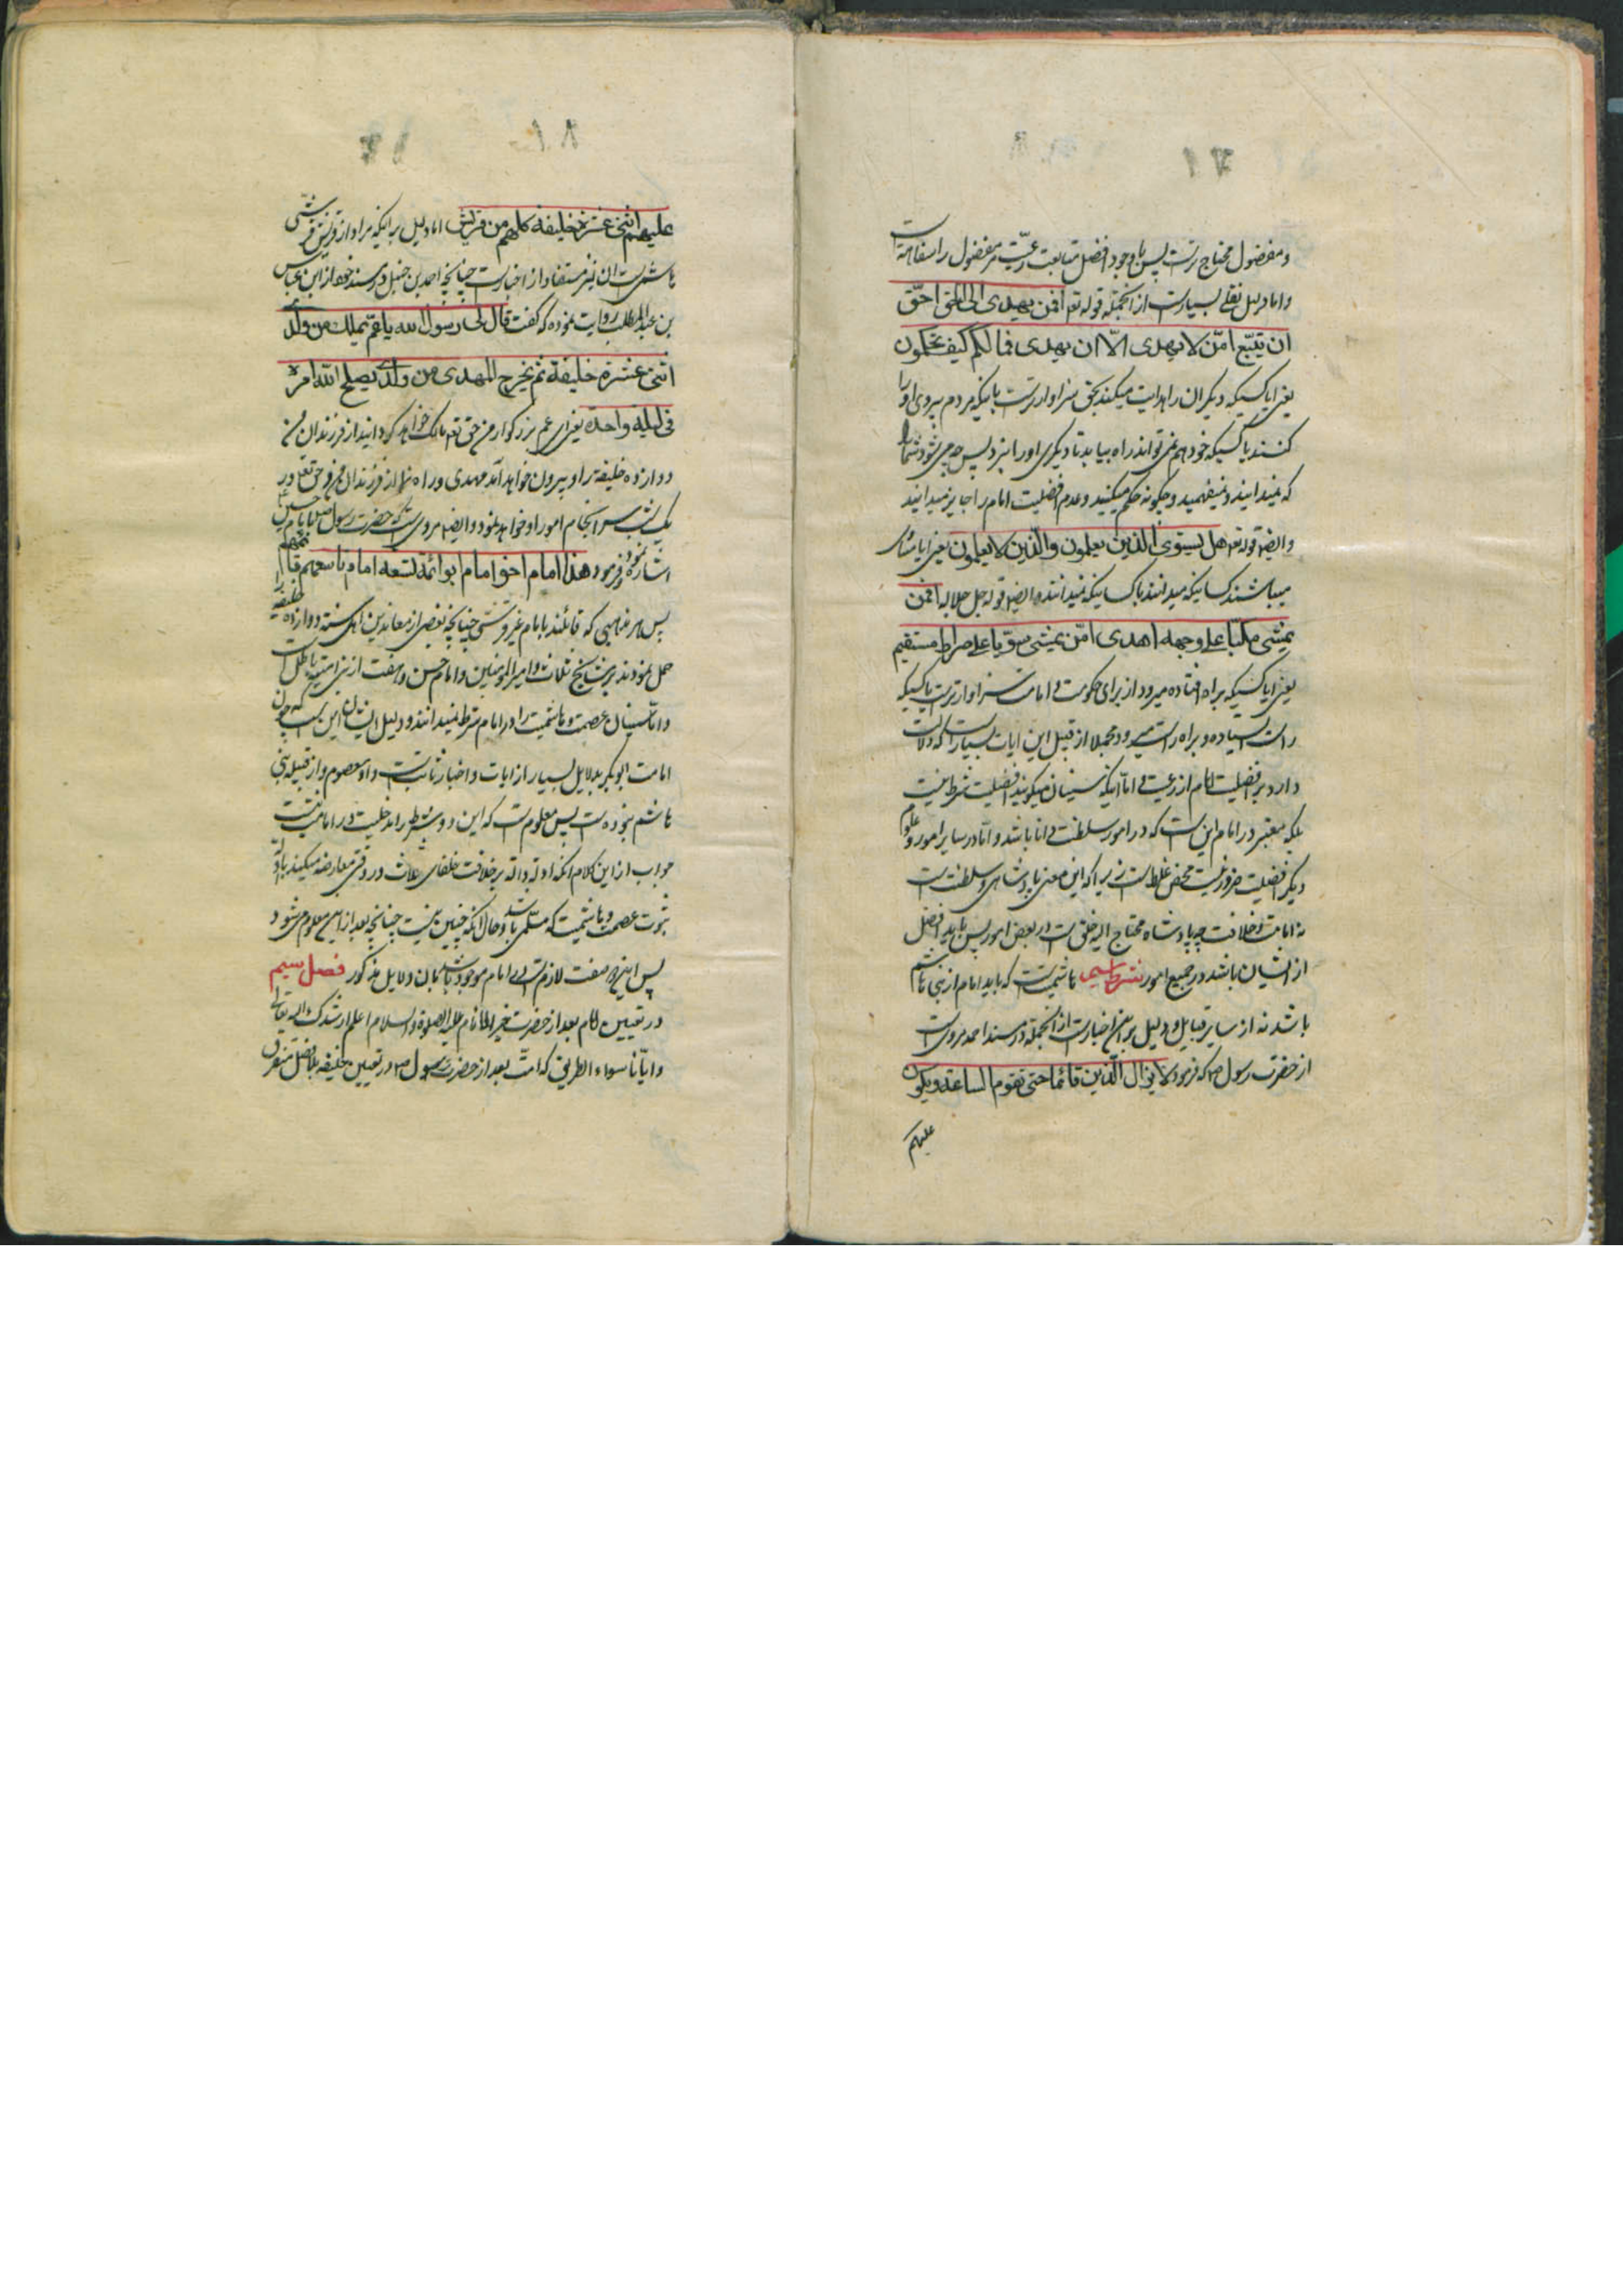 و مفضول محتاج ترست پس با وجود افضل متابعت رعیت مر مفضول را سفاهتست
و اما دلیل نقلی بسیارست از آنجمله قوله تع افمن یهدی الی الحق احق
ان یتبع امن لا یهدی الا ان یهدی فما لکم کیف تحکمون
یعنی ایا کسیکه دیکران را هدایت میکند بحق سزاوارترست باینکه مردم پیروی او را
کنند یا کسیکه خود هم نمی تواند راه بیابد تا دیکری او را نبرد پس چه می شود شما را
که نمیدانید و نمیفهمید و چکونه حکم میکنید و عدم افضلیت امام را جایز میدانید
و ایضا قوله تع هل یستوی الذین یعلمون والذین لا یعلمون یعنی ایا مساوی
میباشند کسانیکه میدانند با کسانیکه نمیدانند و ایضا قوله جل جلاله افمن
یمشی مکبا علی وجهه اهدی امن یمشی سویا علی صراط مستقیم
یعنی ایا کسیکه براه افتاده میرود از برای حکومت و امامت سزاوارترست یا کسیکه
راست ایستاده و براه راست میرود و مجملا از قبیل این ایات بسیارست که دلالت
دارد بر افضلیت امام از رعیت و اما آنکه سنیان میکویند افضلیت شرط نیست
بلکه معتبر در امام این است که در امور سلطنت دانا باشد و اما در سایر امور و علوم
دیکر افضلیت ضرور نیست محض غلط است زیرا که این معنی پادشاهی و سلطنت است
نه امامت و خلافت چه پادشاه محتاج الیه خلق است در بعض امور پس باید افضل
از ایشان باشد در جمیع امور شرط سیم هاشمیت است که باید امام از بنی هاشم
باشد نه از سایر قبایل و دلیل بر این اخبارست از آنجمله در مسند احمد مرویست
از حضرت رسول ص که فرمود لا یزال الدین قائما حتی تقوم الساعة و یکون
علیهم
علیهم اثنی عشرة خلیفة کلهم من قریش اما دلیل بر اینکه مراد از قریش قریشی
هاشمی است ان نیز مستفاد از اخبارست چنانچه احمد بن حنبل در مسند خود از ابن عباس
بن عبد المطلب روایت نموده که کفت قال لی رسول الله یا عم یملک من ولدی
اثنی عشرة خلیفة ثم یخرج المهدی من ولدی یصلح الله امره
فی لیلة واحدة یعنی ای عم بزرکوار من حق تع مالک خواهد کردانید از فرزندان من
دوازده خلیفه را و بیرون خواهد آمد مهدی و راه نما از فرزندان من و حق تع در
یک شب سرانجام امور او خواهد نمود و ایضا مرویست که حضرت رسول ص بامام حسین ع
اشاره نموده و فرمود هذا امام اخو امام ابو ائمة تسعة امام تاسعهم قائمهم
پس هر مذاهبی که قائلند بامام غیر قریشی چنانچه بعضی از معاندین اهل سنت دوازده خلیفه را
حمل نموده‌اند بر مشایخ ثلاث و امیر المؤمنین و امام حسن و هفت از بنی امیه باطل است
و اما سنیان عصمت و هاشمیت را در امام شرط نمیدانند و دلیل ایشان این است که چون
امامت ابوبکر بدلایل بسیار از ایات و اخبار ثابت است و او معصوم و از قبیله بنی
هاشم نبوده است پس معلوم است که این دو شرط را مدخلیت در امامت نیست
جواب از این کلام آنکه ادله داله بر خلافت خلفای ثلاث در وقتی معارضه میکنند با ادله
ثبوت عصمت و هاشمیت که مسلم باشد و حال آنکه چنین نیست چنانچه بعد از این معلوم می شود
پس این صفت لازم است در امام موجود باشد بان دلایل مذکور فصل سیم
در تعیین امام بعد از حضرت خیر الانام علیه الصلوة والسلام اعلم ارشدک الله تعالی
و ایانا سواء الطریق که امت بعد از حضرت رسول ص در تعیین خلیفه بلا فصل متفرق